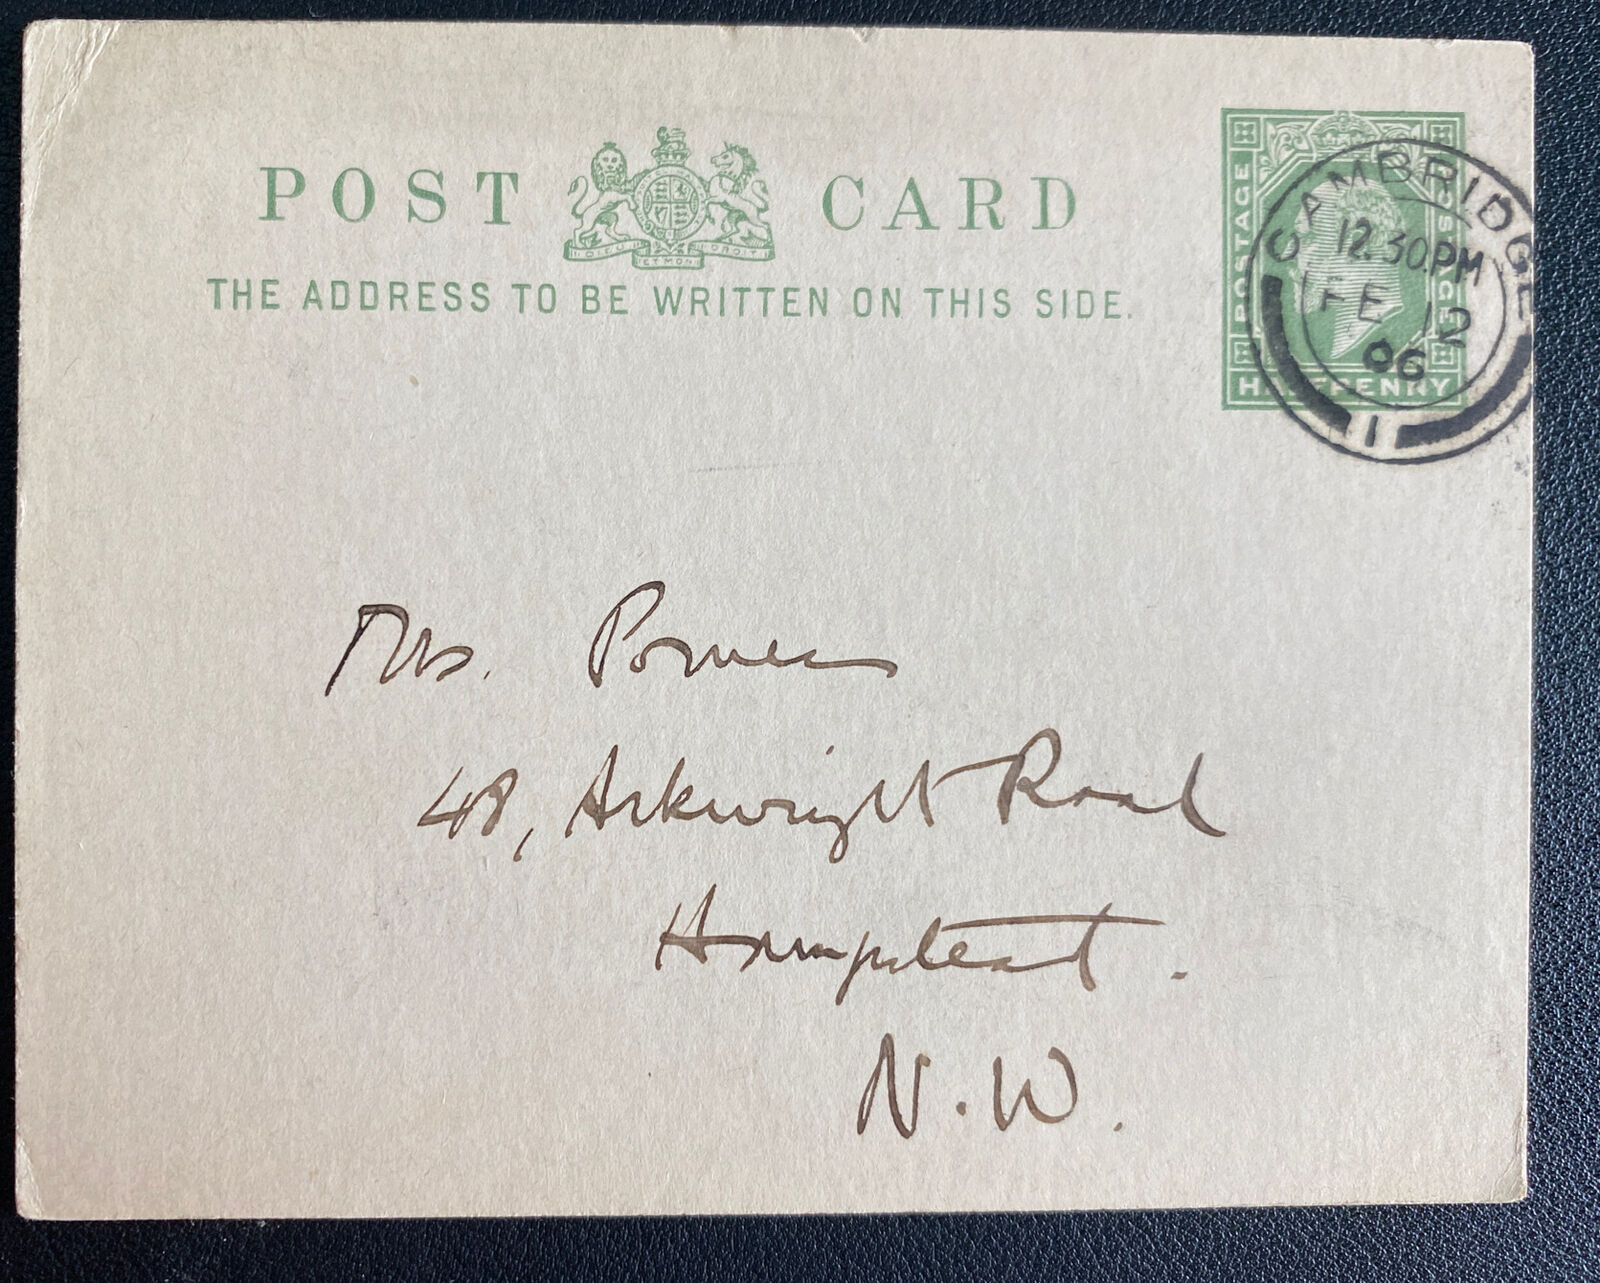 POST CARD
DIEU ET MON DROIT
THE ADDRESS TO BE WRITTEN ON THIS SIDE.
POSTAGE
POSTAGE
HALFPENNY
CAMBRIDGE
12.30PM
FE 12
06
1
Mrs. Power
48, Arkwright Road
Hampstead.
N.W.